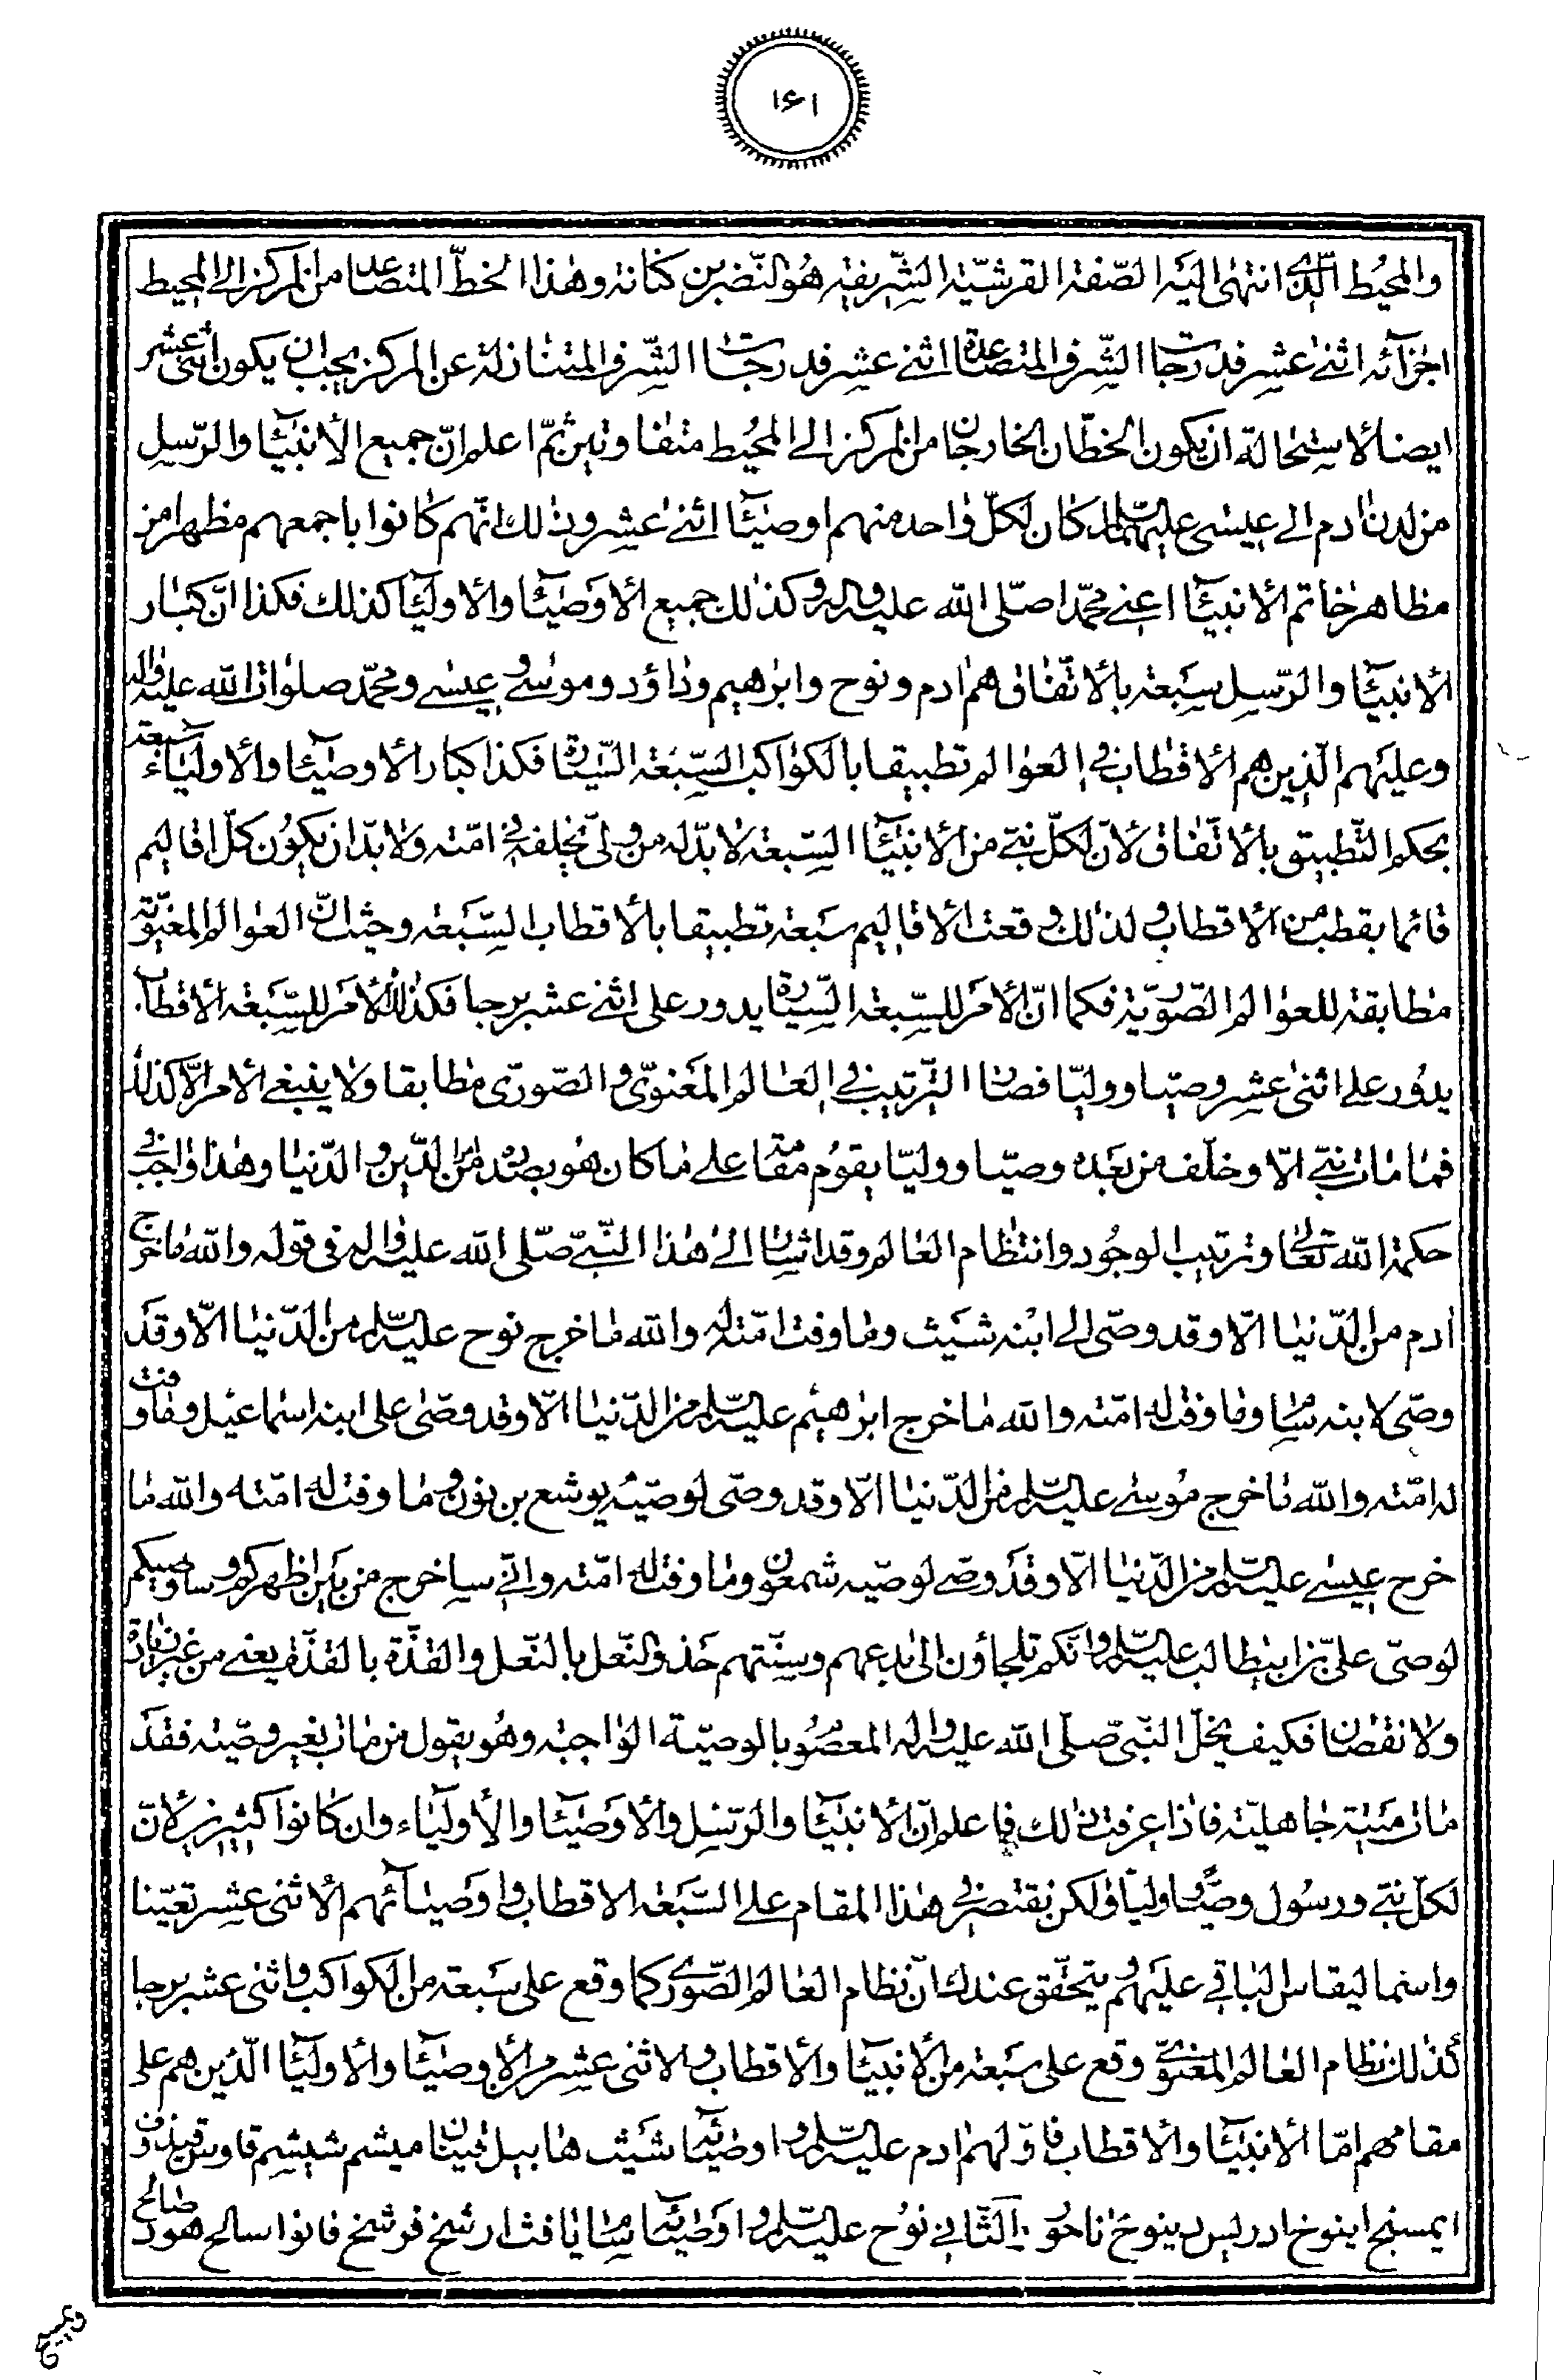 ۱۶۱
والمحيط الّذى انتهى اليه الصّفة القرشيّة الشّريفة هو النّضر بن كنانة وهذا الخطّ المتصاعد من المركز الى المحيط
اجزآئه اثنى عشر فدرجات الشّرف المتصاعدة اثنى عشر فدرجات الشّرف المتنازلة عن المركز يجب ان يكون اثنى عشر
ايضا لاستحالة ان يكون الخطّان الخارجان من المركز الى المحيط متفاوتين ثمّ اعلم انّ جميع الأنبيآء والرّسل
من لدن ادم الى عيسى عليهما السّلم كان لكلّ واحد منهم اوصيآء اثنى عشر وذلك انّهم كانوا باجمعهم مظهرا من
مظاهر خاتم الأنبيآء اعنى محمّدا صلّى الله عليه واله وكذلك جميع الأوصيآء والأوليآء كذلك فكذا انّ كبار
الأنبيآء والرّسل سبعة بالأتّفاق هم ادم ونوح وابرهيم وداؤد وموسى وعيسى ومحمّد صلوات الله عليه واله
وعليهم الّذين هم الأقطاب فى العوالم تطبيقا بالكواكب السّبعة السّيّارة فكذا كبار الأوصيآء والأوليآء سبعة
بحكم التّطبيق بالأتّفاق لأنّ لكلّ نبىّ من الأنبيآء السّبعة لابدّ له من ولىّ يخلفه فى امّته ولابدّ ان يكون كلّ اقاليم
قائما بقطب من الأقطاب ولذلك وقعت الأقاليم سبعة تطبيقا بالأقطاب السّبعة وحيث انّ العوالم المعنويّة
مطابقة للعوالم الصّوريّة فكما انّ الأمر للسّبعة السّيّارة يدور على اثنى عشر برجا فكذلك الأمر للسّبعة الأقطاب
يدور على اثنى عشر وصيّا ووليّا فصار التّرتيب فى العالم المعنوىّ والصّورى مطابقا ولا ينبغى الأمر الّا كذلك
فما مات نبىّ الّا وخلّف من بعده وصيّا ووليّا يقوم مقامه على ما كان هو بصدده من امر الدّين والدّنيا وهذا واجب فى
حكمة الله تعالى وترتيب الوجود وانتظام العالم وقد اشار الى هذا النّبىّ صلّى الله عليه واله فى قوله والله ما خرج
ادم من الدّنيا الّا وقد وصّى الى ابنه شيث وما وفت امّته له والله ما خرج نوح عليه السّلم من الدّنيا الّا وقد
وصّى لابنه سام وما وفت له امّته والله ما خرج ابرهيم عليه السّلم من الدّنيا الّا وقد وصّى على ابنه اسماعيل وما وفت
له امّته والله ما خرج موسى عليه السّلم من الدّنيا الّا وقد وصّى لوصيّه يوشع بن نون وما وفت له امّته والله ما
خرج عيسى عليه السّلم من الدّنيا الّا وقد وصّى لوصيّه شمعون وما وفت له امّته وانّى ساخرج من بين اظهركم وساوصيكم
لوصىّ علىّ بن ابيطالب عليه السّلم وانّكم تلجاؤن الى بدعهم وسنّتهم حذو النّعل بالنّعل والقذّة بالقذّة يعنى من غير زيادة
ولا نقصان فكيف يخلّ النّبىّ صلّى الله عليه واله المعصوم بالوصيّة الواجبة وهو يقول من مات بغير وصيّة فقد
مات ميتة جاهليّة فاذا عرفت ذلك فاعلم انّ الأنبيآء والرّسل والأوصيآء والأوليآء وان كانوا كثيرين لأنّ
لكلّ نبىّ ورسول وصيّا واوليآء ولكن نقتصر فى هذا المقام على السّبعة الاقطاب واوصيآئهم الأثنى عشر تعيّنا
واسما ليقاس الباقى عليهم ويتحقّق عندك انّ نظام العالم الصّورى كما وقع على سبعة من الكواكب واثنى عشر برجا
كذلك نظام العالم المعنوىّ وقع على سبعة من الأنبيآء والأقطاب والاثنى عشر من الأوصيآء والأوليآء الّذين هم على
مقامهم امّا الأنبيآء والأقطاب فاوّلهم ادم عليه السّلم واوصيآئه شيث هابيل قينان ميشم شيشم قاوس قيذوف
ايمسنح اينوخ ادريس دينوخ ناحور الثّانى نوح عليه السّلم واوصيآئه سام يافث ارشخ فرشخ فانوا سالح هود صالح